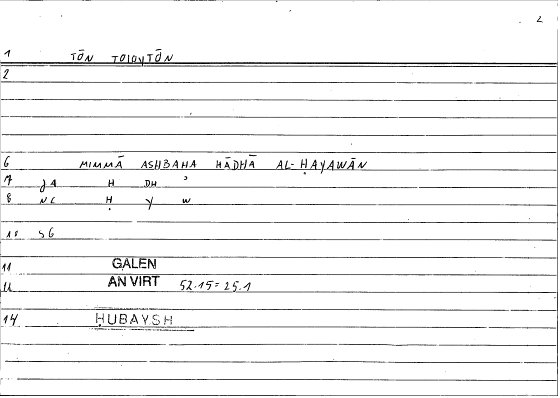 2
1 TŌN TOIOYTŌN
2
6 MIMMĀ ASHBAHA HĀDHĀ AL-ḤAYAWĀN
7 JA H DH ʾ
8 NC Ḥ Y W
10 SG
11 GALEN
12 AN VIRT 52.15 = 25.1
14 ḤUBAYSH